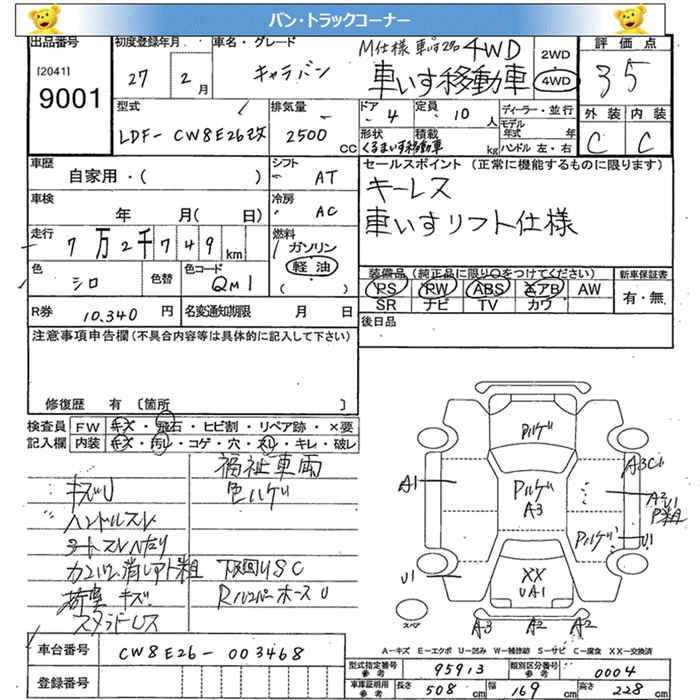 バン・トラックコーナー
出品番号 初度登録年月 車名・グレード M仕様 4WD 2WD 評価点
[2041] 9001 27 年 2 月 キャラバン 車いす移動車 4WD 3 5
型式 排気量 ドア 4 定員 10 人 ディーラー・並行 外装 内装
モデル 年式 年
LDF- CW8E26改 2500 cc 形状 くるまいす移動車 積載 kg ハンドル 左・右 C C
車歴 自家用・( ) シフト AT セールスポイント (正常に機能するものに限ります)
車検 年 月( 日) 冷房 AC キーレス
走行 7万2千749km 燃料 ガソリン 車いすリフト仕様
色 シロ 色替 色コード QM1 軽油 ( )
装備品 (純正品に限り○をつけてください) 新車保証書
PS PW ABS エアB AW 有・無
SR ナビ TV カワ
R券 10,340 円 名変通知期限 月 日 後日品
注意事項申告欄 (不具合内容等は具体的に記入して下さい)
修復歴 有 〔箇所 〕
検査員 FW キズ・飛石・ヒビ割・リペア跡・×要
記入欄 内装 キズ・汚レ・コゲ・穴・スレ・キレ・破レ
福祉車両
キズU 色ハゲ
ハンドルスレ
シートスレヘタリ
消しアト 下回りSC
荷室 キズ
スタッドレス
Pハゲ
A1 Pハゲ A3 A3
A2 U1
Pハゲ U1
U1 XX UA1
スペア A3 A2 A2
A－キズ E－エクボ U－凹み W－補修跡 S－サビ C－腐食 XX－交換済
車台番号 CW8E26-003468 型式指定番号 参考 95913 類別区分番号 参考 0004
登録番号 車庫証明用 参考 長さ 508 cm 幅 169 cm 高さ 228 cm